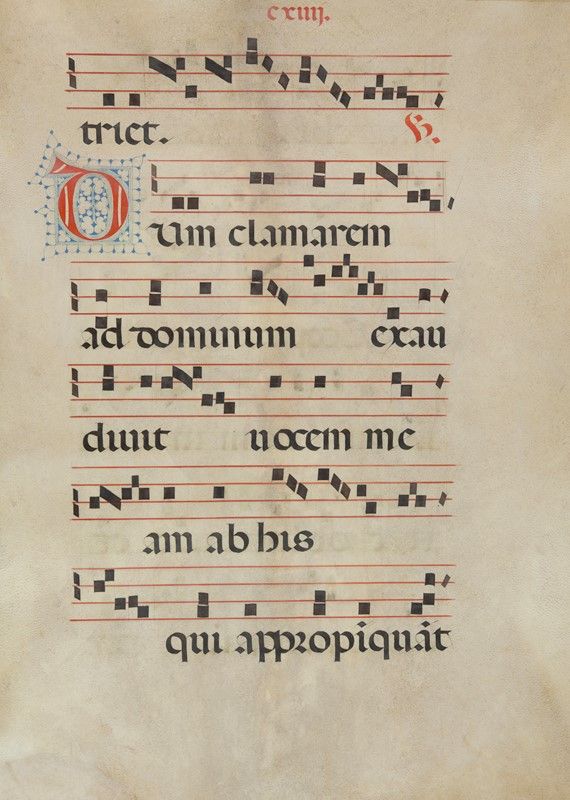 cxiiij.
triet.
R.
DUm clamarem
ad dominum exau
diuit uocem me
am ab his
qui appropiquāt